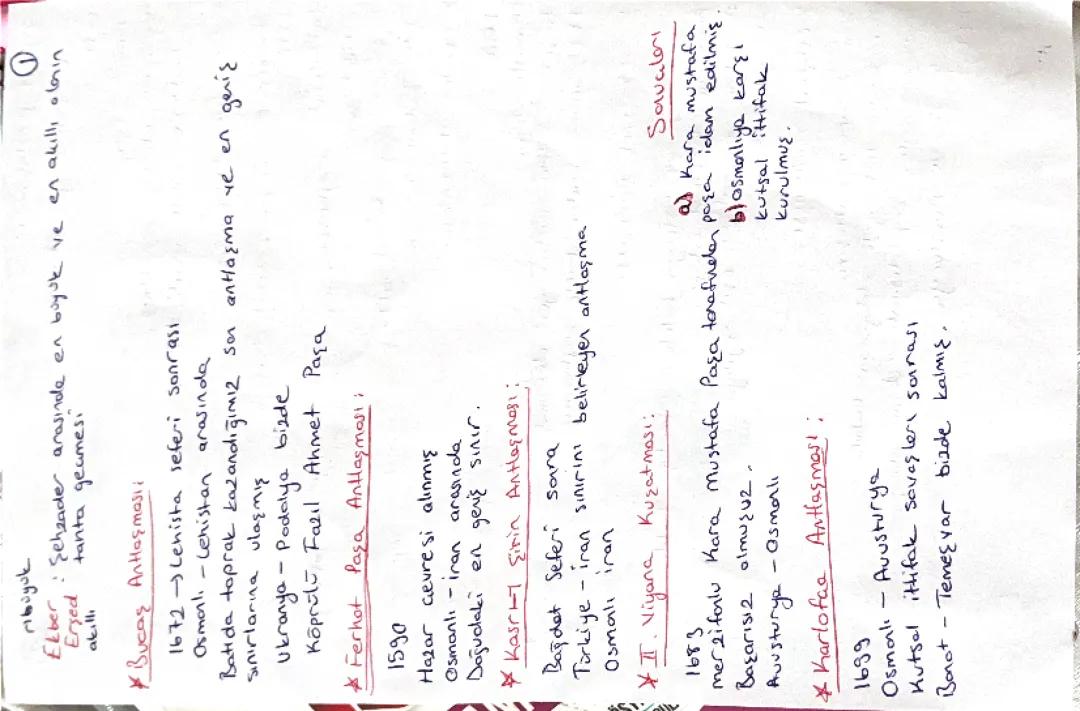 ①
nbüyük
Ekber
Erşed : Şehzadler arasında en büyük ve en akıllı olanın
akıllı tahta geçmesi
* Bucaş Antlaşması:
1672 → Lehista seferi sonrası
Osmanlı - Lehistan arasında
Batıda toprak kazandığımız son antlaşma ve en geniş
sınırlarına ulaşmış
Ukranya - Podolya bizde
Köprülü Fazıl Ahmet Paşa
* Ferhat Paşa Antlaşması:
1590
Hazar çevresi alınmış
Osmanlı - iran arasında
Doğudaki en geniş sınır.
* Kasr-ı Şirin Antlaşması:
Bağdat Seferi sonra
Türkiye - İran sınırını belirleyen antlaşma
Osmanlı iran
* II. Viyana Kuşatması:
1683
merzifonlu Kara mustafa Paşa tarafından
Başarısız olmuşuz.
Avusturya - Osmanlı
Sonuçları
a) Kara mustafa
paşa idam edilmiş.
b) Osmanlıya karşı
kutsal ittifak
kurulmuş.
* Karlofça Antlaşması:
1699
Osmanlı - Avusturya
Kutsal ittifak savaşları sonrası
Banat - Temeşvar bizde kalmış.